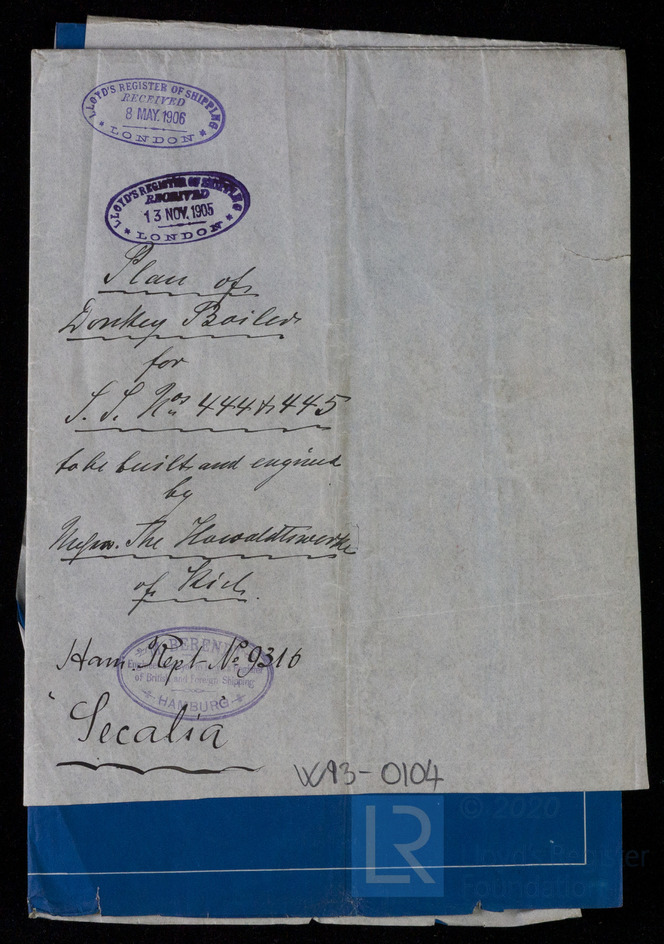 LLOYD'S REGISTER OF SHIPPING
RECEIVED
8 MAY. 1906
* LONDON *
LLOYD'S REGISTER OF SHIPPING
RECEIVED
13 NOV. 1905
* LONDON *
Plan of
Donkey Boiler
for
S. S. Nos 444 & 445
to be built and engined
by
Messrs. The Howaldtswerke
of Kiel.
BEREN
of British and Foreign Shipping
HAMBURG
Ham. Rept No 9316
"Secalia"
W93-0104
LR
© 2020
Lloyd's Register
Foundation